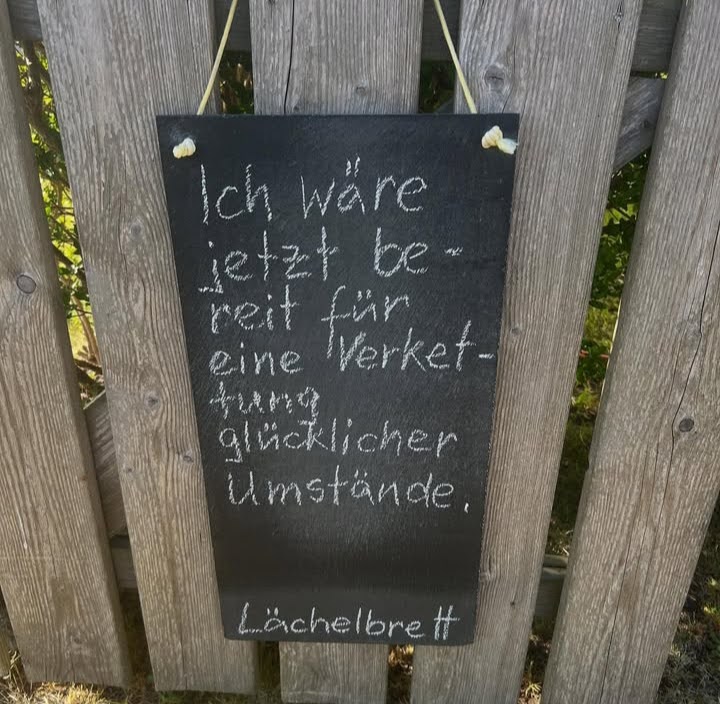 Ich wäre
jetzt be-
reit für
eine Verket-
tung
glücklicher
Umstände.
Lächelbrett